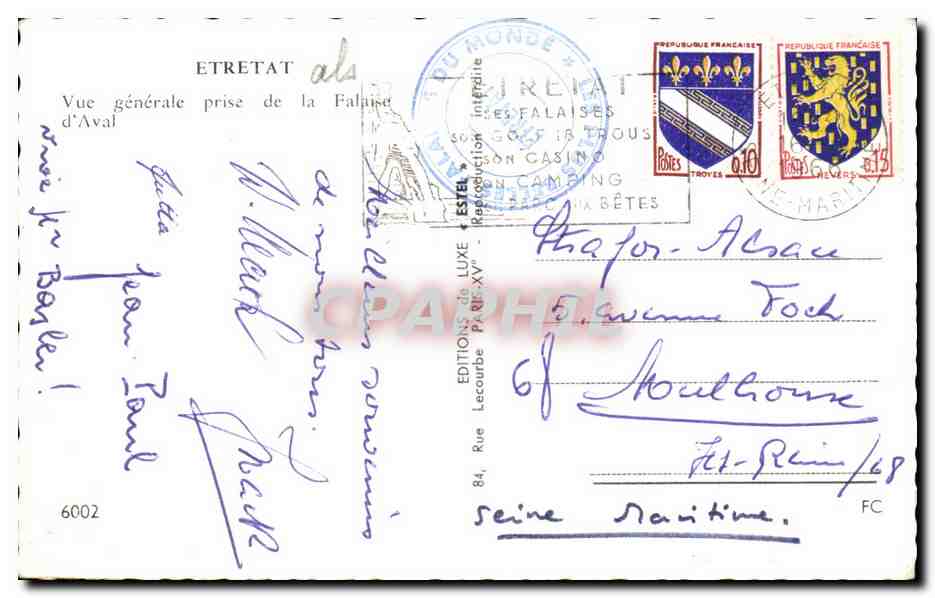 ETRETAT
als
Vue générale prise de la Falaise
d'Aval
Meilleurs souvenirs
de nous tous.
Jean Paul
6002
EDITIONS de LUXE "ESTEL"
84, Rue Lecourbe PARIS-XV° - Reproduction interdite
DU MONDE
ETRETAT
SES FALAISES
son GOLF 18 TROUS
son CASINO
son CAMPING
son PARC aux BÊTES
REPUBLIQUE FRANÇAISE
POSTES 0,10
TROYES
REPUBLIQUE FRANÇAISE
POSTES 0,15
NEVERS
NE-MARIT
Strafor-Alsace
5, avenue Foch
68 Mulhouse
Ht-Rhin/68
Seine Maritime.
FC
CPAPHIL